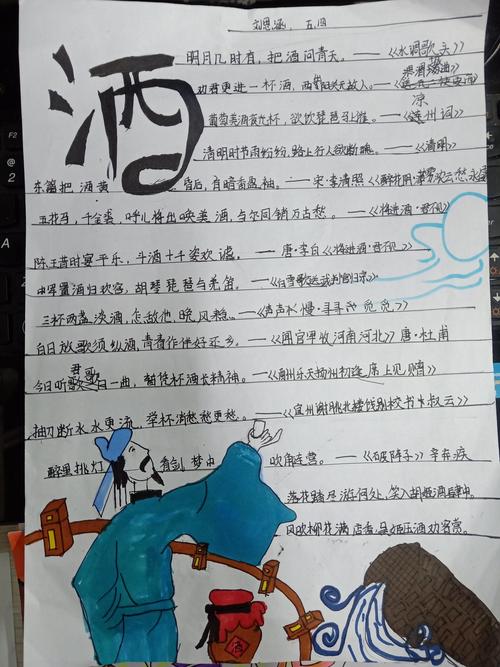 刘思涵 五、四
酒
明月几时有，把酒问青天。——《水调歌头》
劝君更进一杯酒，西出阳关无故人。——《
渭城曲》
葡萄美酒夜光杯，欲饮琵琶马上催。——《凉州词》
清明时节雨纷纷，路上行人欲断魂。——《清明》
东篱把酒黄昏后，有暗香盈袖。——宋·李清照《醉花阴·薄雾浓云愁永昼
五花马，千金裘，呼儿将出唤美酒，与尔同销万古愁。——《将进酒·君不见》
陈王昔时宴平乐，斗酒十千恣欢谑。——唐·李白《将进酒·君不见》
中军置酒归饮客，胡琴琵琶与羌笛。——《白雪歌送武判官归京》
三杯两盏淡酒，怎敌他，晚风急。——《声声慢·寻寻觅觅》
白日放歌须纵酒，青春作伴好还乡。——《闻官军收河南河北》唐·杜甫
今日听君歌一曲，暂凭杯酒长精神。——《酬乐天扬州初逢席上见赠》
抽刀断水水更流，举杯消愁愁更愁。——《宣州谢朓北楼饯别校书叔云》
醉里挑灯看剑，梦回吹角连营。——《破阵子》辛弃疾
落花踏尽游何处，笑入胡姬酒肆中。
风吹柳花满店香，吴姬压酒劝客尝。
酒